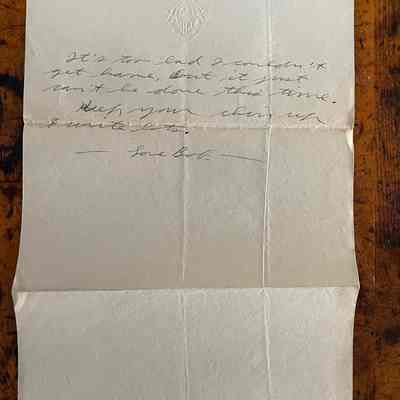 It's too bad I couldn't
get home, But it just
can't be done this time.
Keep your chin up
I write lots.
— Love Bob. —